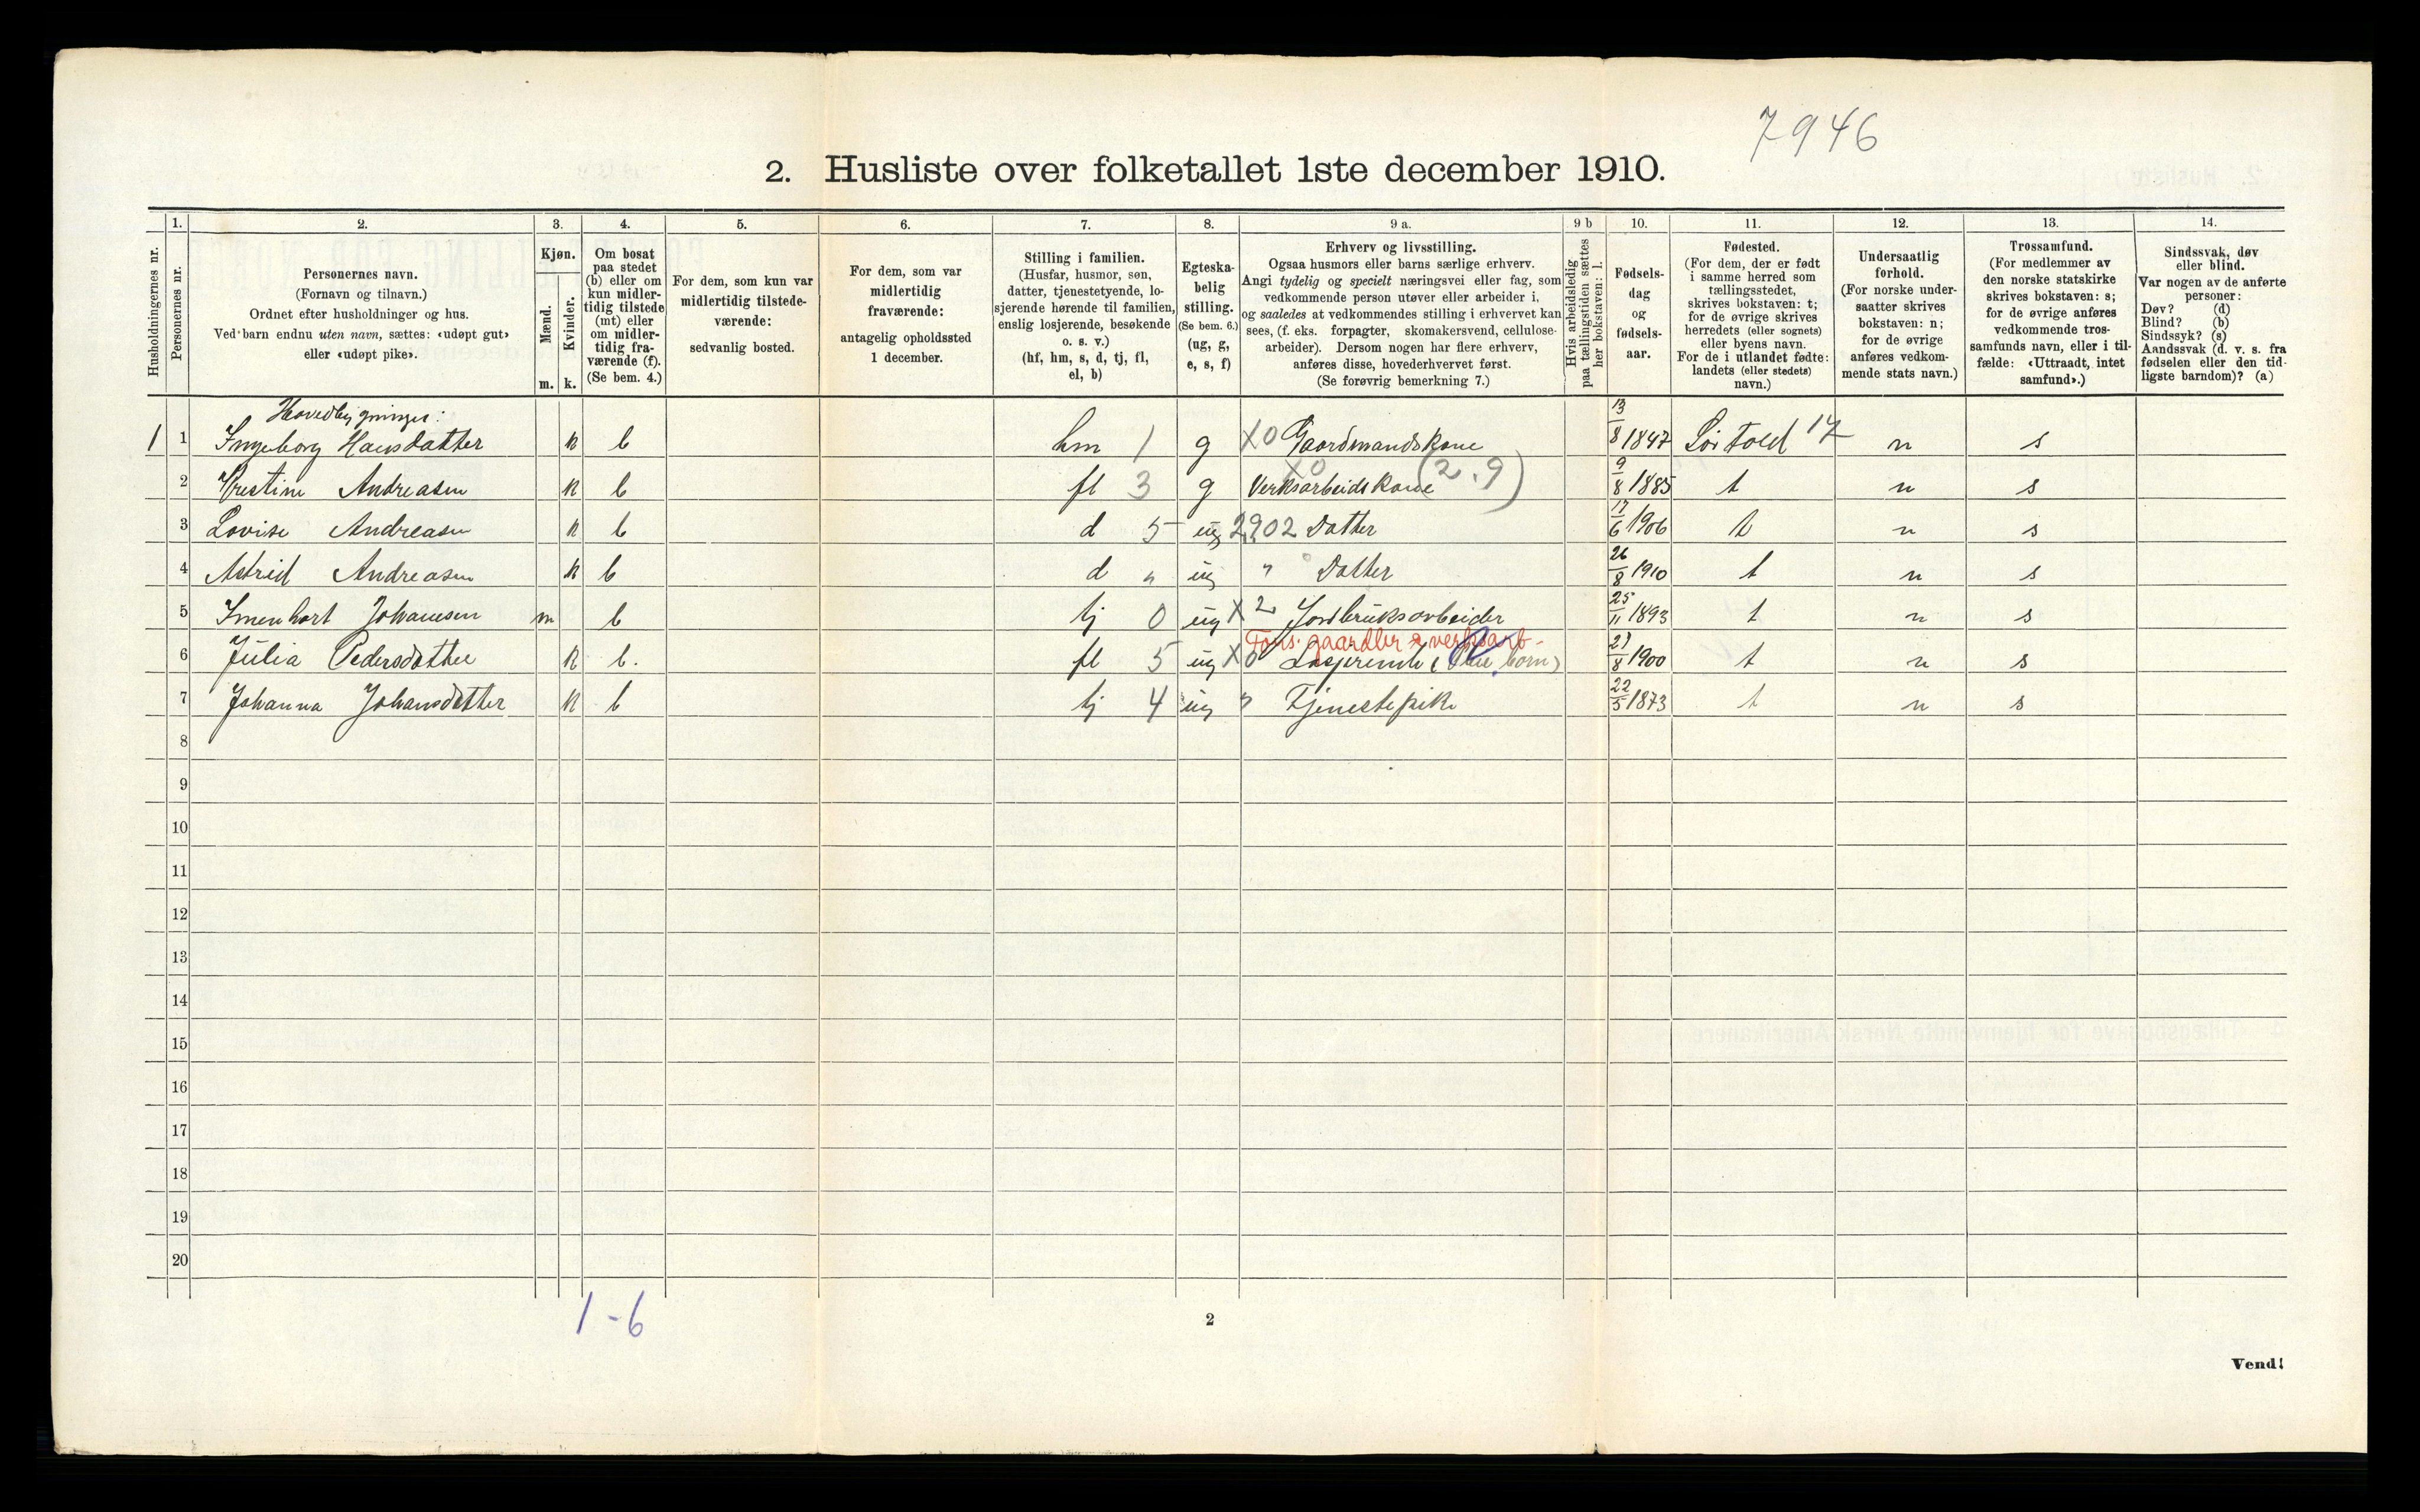 7946
2. Husliste over folketallet 1ste december 1910.
Husholdningernes nr.
1.
Personernes nr.
2.
Personernes navn.
(Fornavn og tilnavn.)
Ordnet efter husholdninger og hus.
Ved barn endnu uten navn, sættes: «udøpt gut»
eller «udøpt pike».
3.
Kjøn.
Mænd.
Kvinder.
m. k.
4.
Om bosat
paa stedet
(b) eller om
kun midler-
tidig tilstede
(mt) eller
om midler-
tidig fra-
værende (f).
(Se bem. 4.)
5.
For dem, som kun var
midlertidig tilstede-
værende:
sedvanlig bosted.
6.
For dem, som var
midlertidig
fraværende:
antagelig opholdssted
1 december.
7.
Stilling i familien.
(Husfar, husmor, søn,
datter, tjenestetyende, lo-
sjerende hørende til familien,
enslig losjerende, besøkende
o. s. v.)
(hf, hm, s, d, tj, fl,
el, b)
8.
Egteska-
belig
stilling.
(Se bem. 6.)
(ug, g,
e, s, f)
9 a.
Erhverv og livsstilling.
Ogsaa husmors eller barns særlige erhverv.
Angi tydelig og specielt næringsvei eller fag, som
vedkommende person utøver eller arbeider i,
og saaledes at vedkommendes stilling i erhvervet kan
sees, (f. eks. forpagter, skomakersvend, cellulose-
arbeider). Dersom nogen har flere erhverv,
anføres disse, hovederhvervet først.
(Se forøvrig bemerkning 7.)
9 b
Hvis arbeidsledig
paa tællingstiden sættes
her bokstaven: l.
10.
Fødsels-
dag
og
fødsels-
aar.
11.
Fødested.
(For dem, der er født
i samme herred som
tællingsstedet,
skrives bokstaven: t;
for de øvrige skrives
herredets (eller sognets)
eller byens navn.
For de i utlandet fødte:
landets (eller stedets)
navn.)
12.
Undersaatlig
forhold.
(For norske under-
saatter skrives
bokstaven: n;
for de øvrige
anføres vedkom-
mende stats navn.)
13.
Trossamfund.
(For medlemmer av
den norske statskirke
skrives bokstaven: s;
for de øvrige anføres
vedkommende tros-
samfunds navn, eller i til-
fælde: «Uttraadt, intet
samfund».)
14.
Sindssvak, døv
eller blind.
Var nogen av de anførte
personer:
Døv? (d)
Blind? (b)
Sindssyk? (s)
Aandssvak (d. v. s. fra
fødselen eller den tid-
ligste barndom)? (a)
Hovedbygninger:
1 1 Ingeborg Hansdatter k b hm 1 g X0 Gaardmandskone 13/8 1847 17 n s
2 Kristine Andreasen k b fl 3 g X0 Verksarbeidskone (2.9) 9/8 1885 t n s
3 Lovise Andreasen k b d 5 ug 2902 Datter 17/6 1906 t n s
4 Astrid Andreasen k b d " ug " Datter 26/8 1910 t n s
5 Johansen m b tj 0 ug X2 Jordbruksarbeider 25/11 1893 t n s
Fors. gaardbr & verksarb-
6 Julia Pedersdatter k b. fl 5 ug X0 Losjerende ( barn) 8 1900 t n s
7 Johanna Johansdatter k b tj 4 ug " Tjenestepike 22/5 1873 t n s
8
9
10
11
12
13
14
15
16
17
18
19
20
1-6
2
Vend!